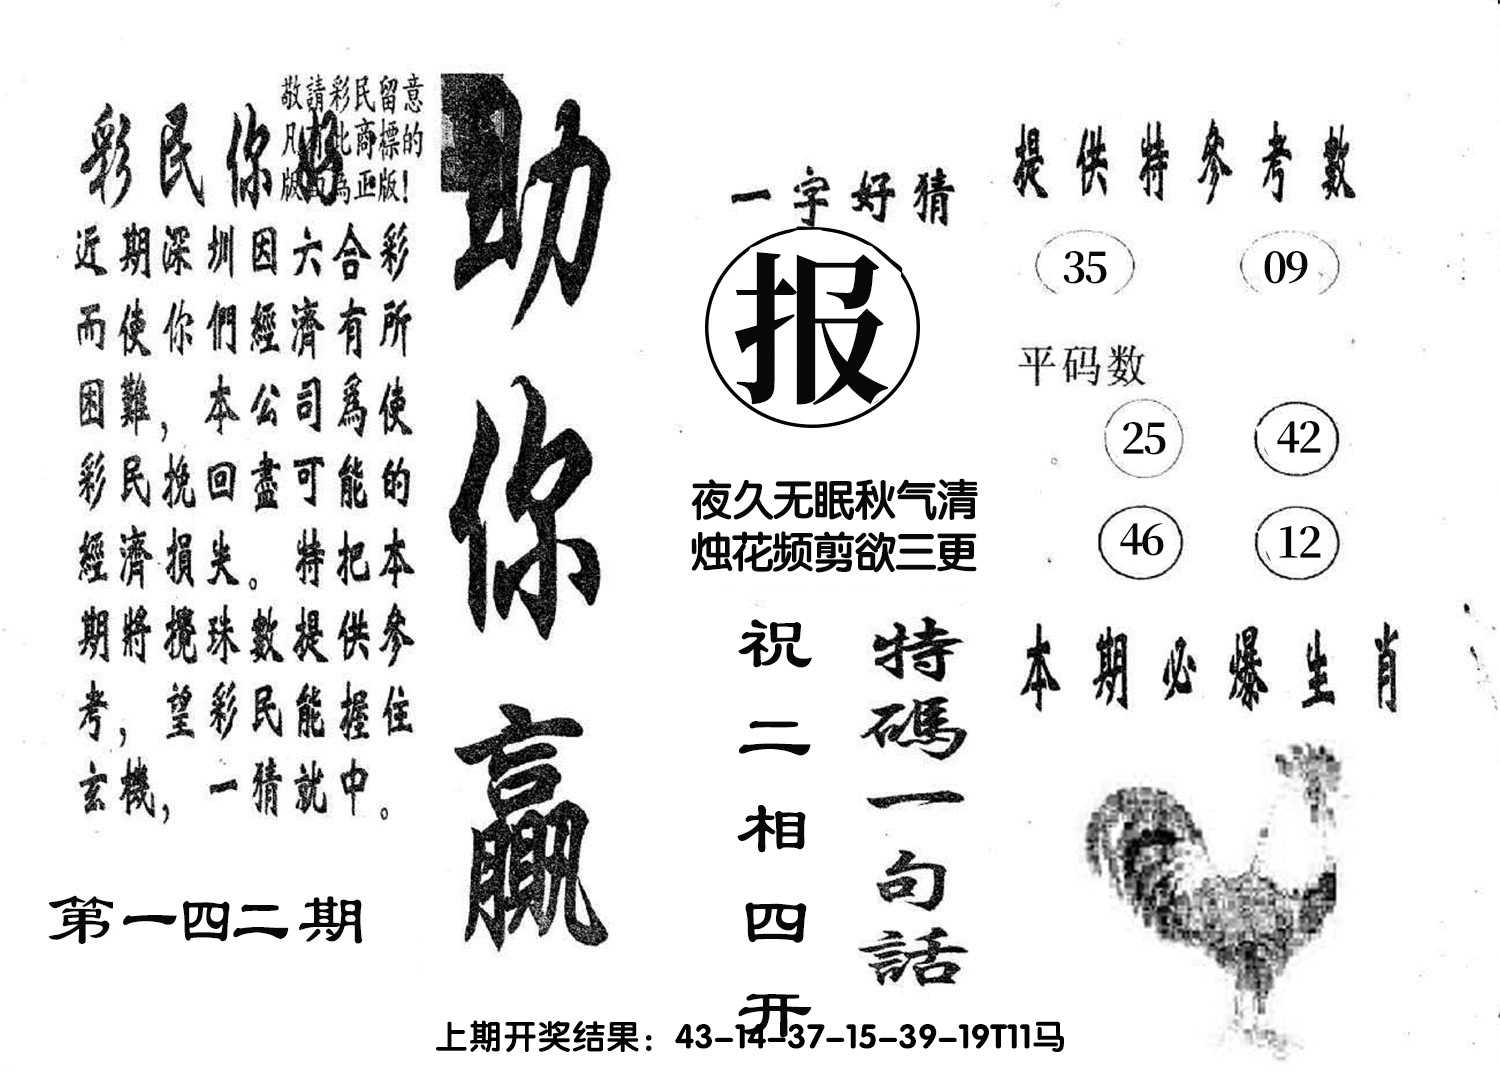 敬請彩民留意
凡有此商標的
版面為正版！
彩民你好
近期深圳因六合彩
而使你們經濟有所
困難，本公司爲使
彩民挽回盡可能的
經濟損失。特把本
期將攪珠數提供參
考，望彩民能握住
玄機，一猜就中。
第一四二期
助你贏
一字好猜
报
夜久无眠秋气清
烛花频剪欲三更
特碼一句話
祝二相四开
提供特參考數
35 09
平码数
25 42
46 12
本期必爆生肖
上期开奖结果：43-14-37-15-39-19T11马